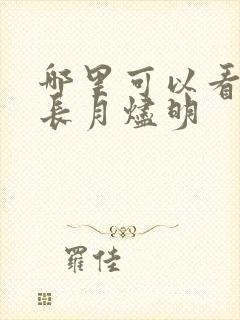 哪里可以看
长月燼明
羅佳